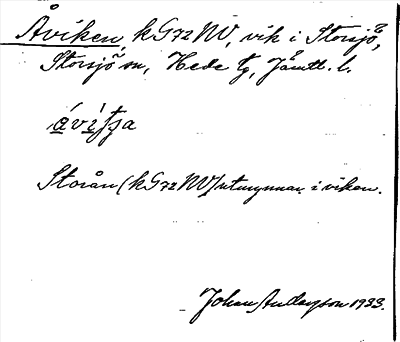 Åviken, kG72NV, vik i Storsjö,
Storsjö sn, Hede tg, Jämtl. l.
Storån (kG72NV) utmynnar i viken.
Johan Anderson 1933.